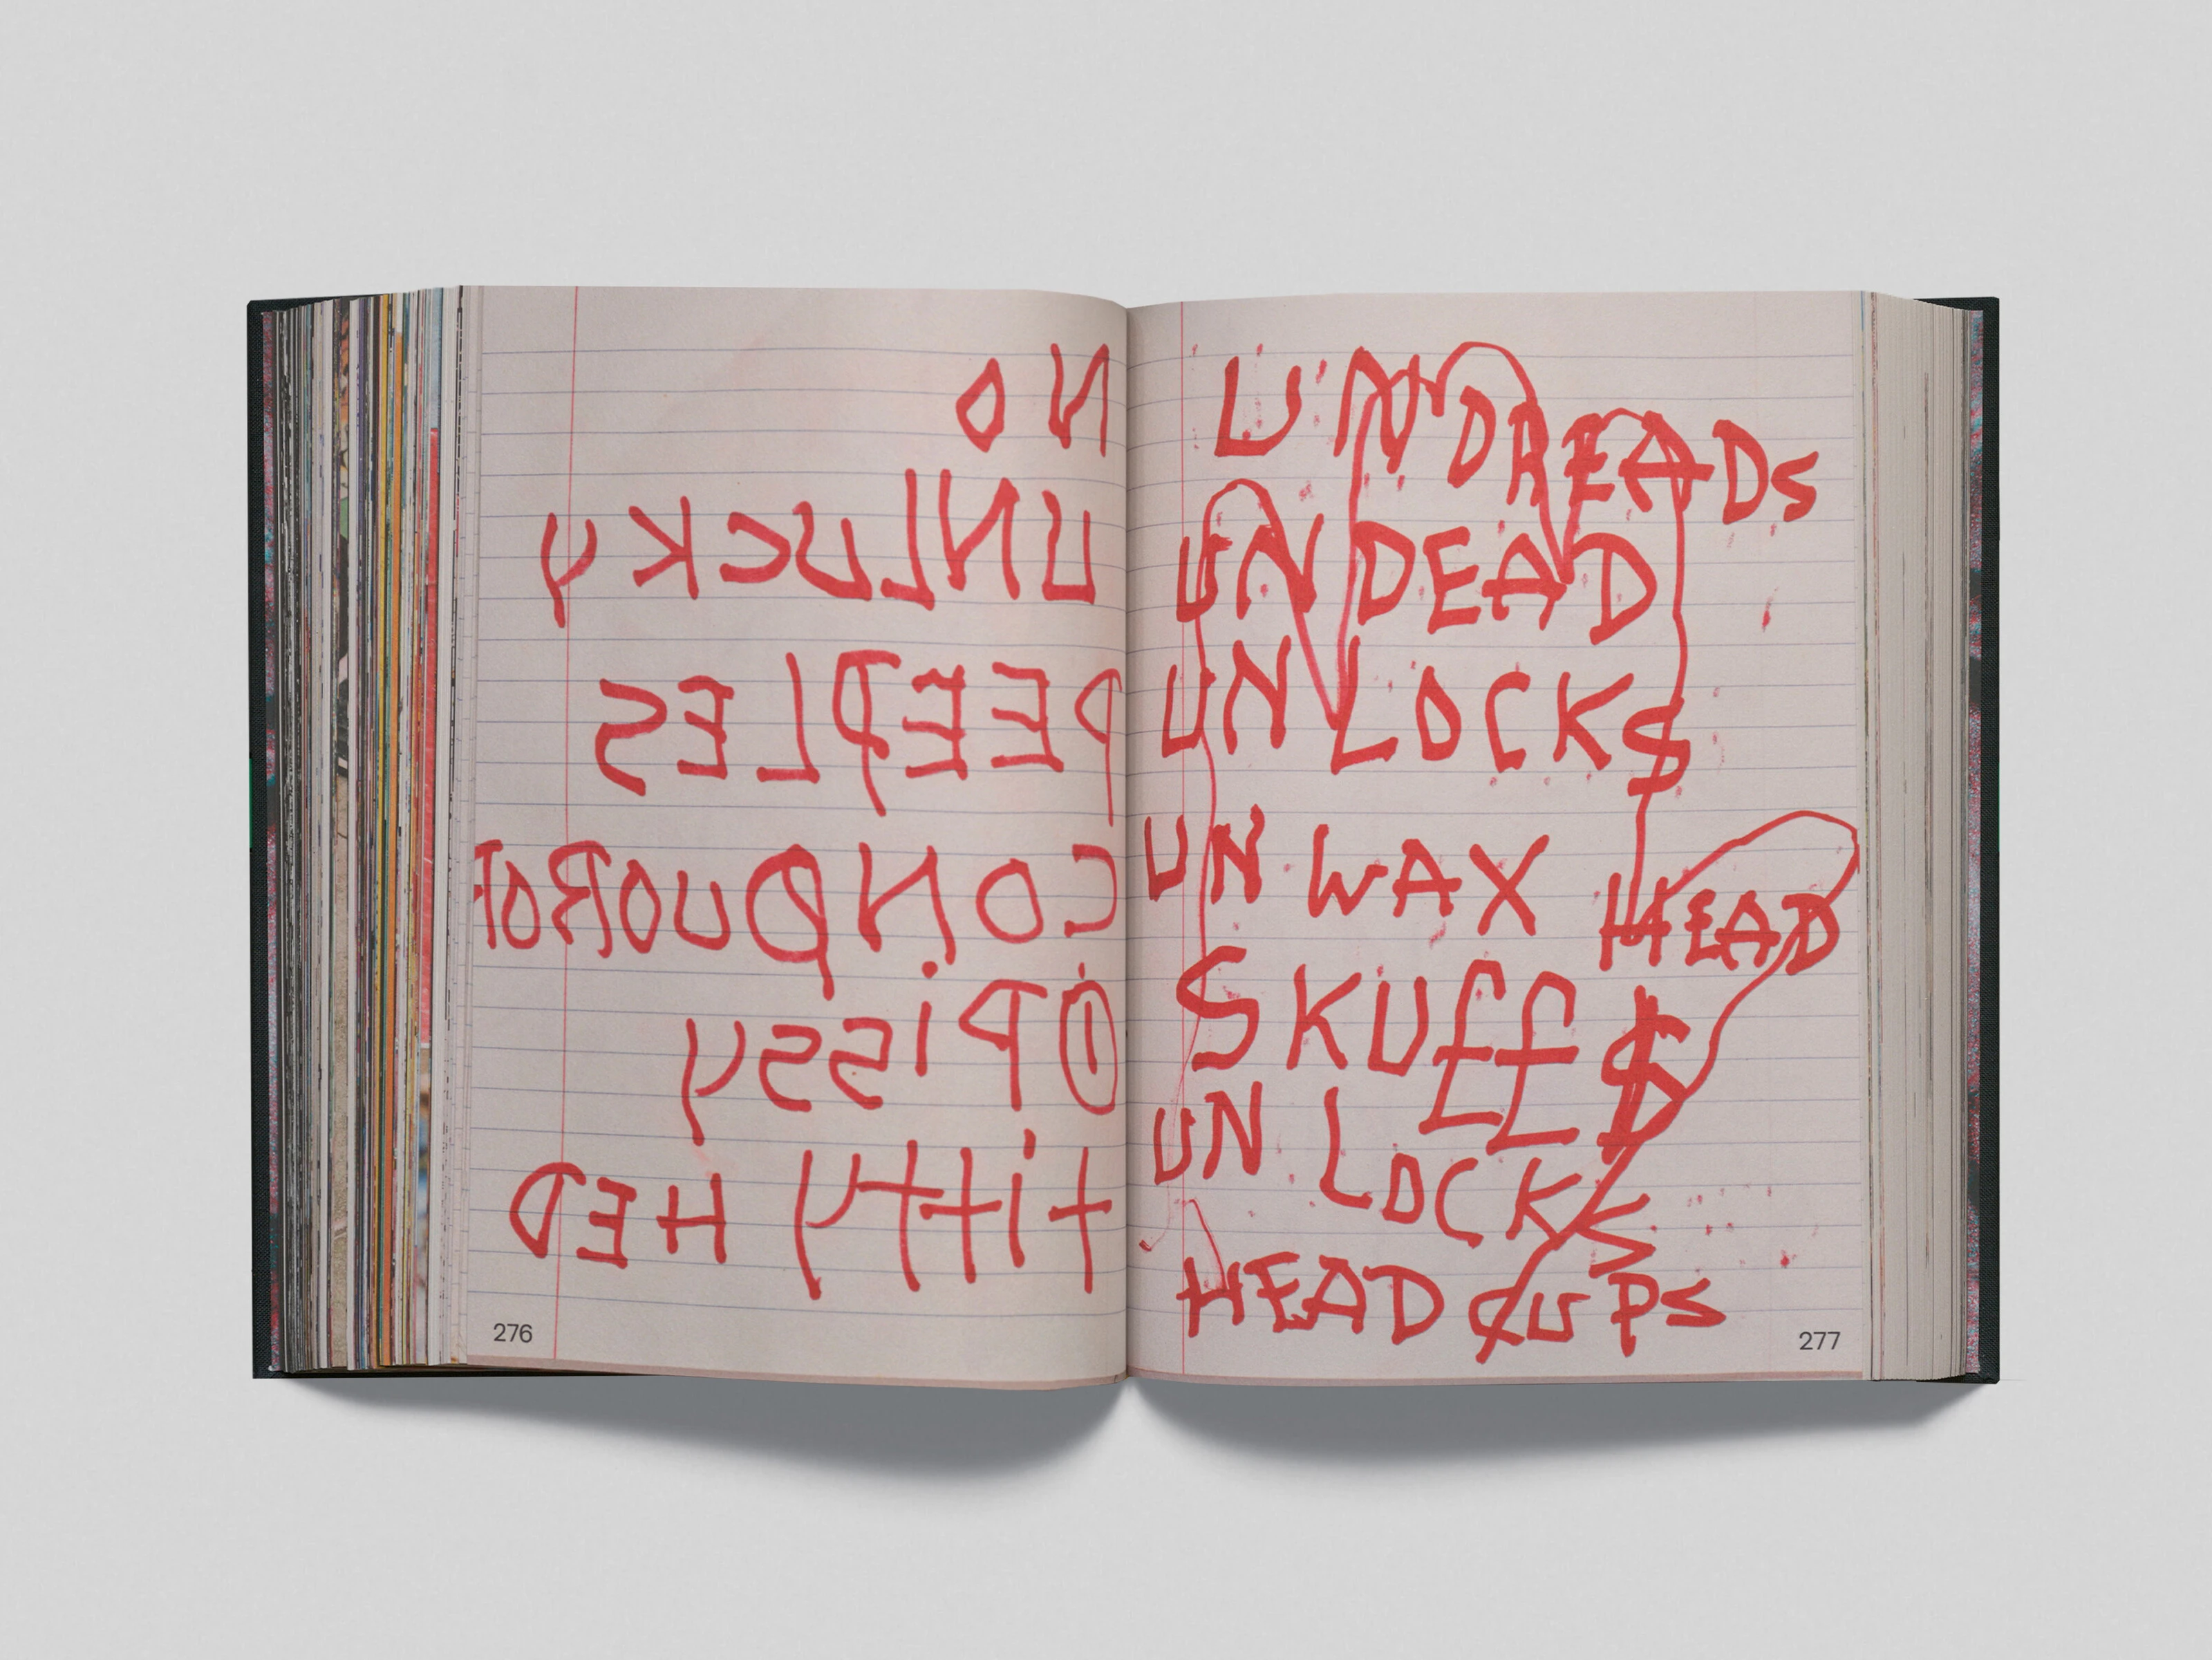 NO
UNLUCKY
PEEPLES
CONDUOROR
① PiSSY
tittty HED
276
UN DREADS
UN DEAD
UN LOCK$
UN WAX HEAD
SKU££$
UN LOCKS
HEAD ȻUPS
277